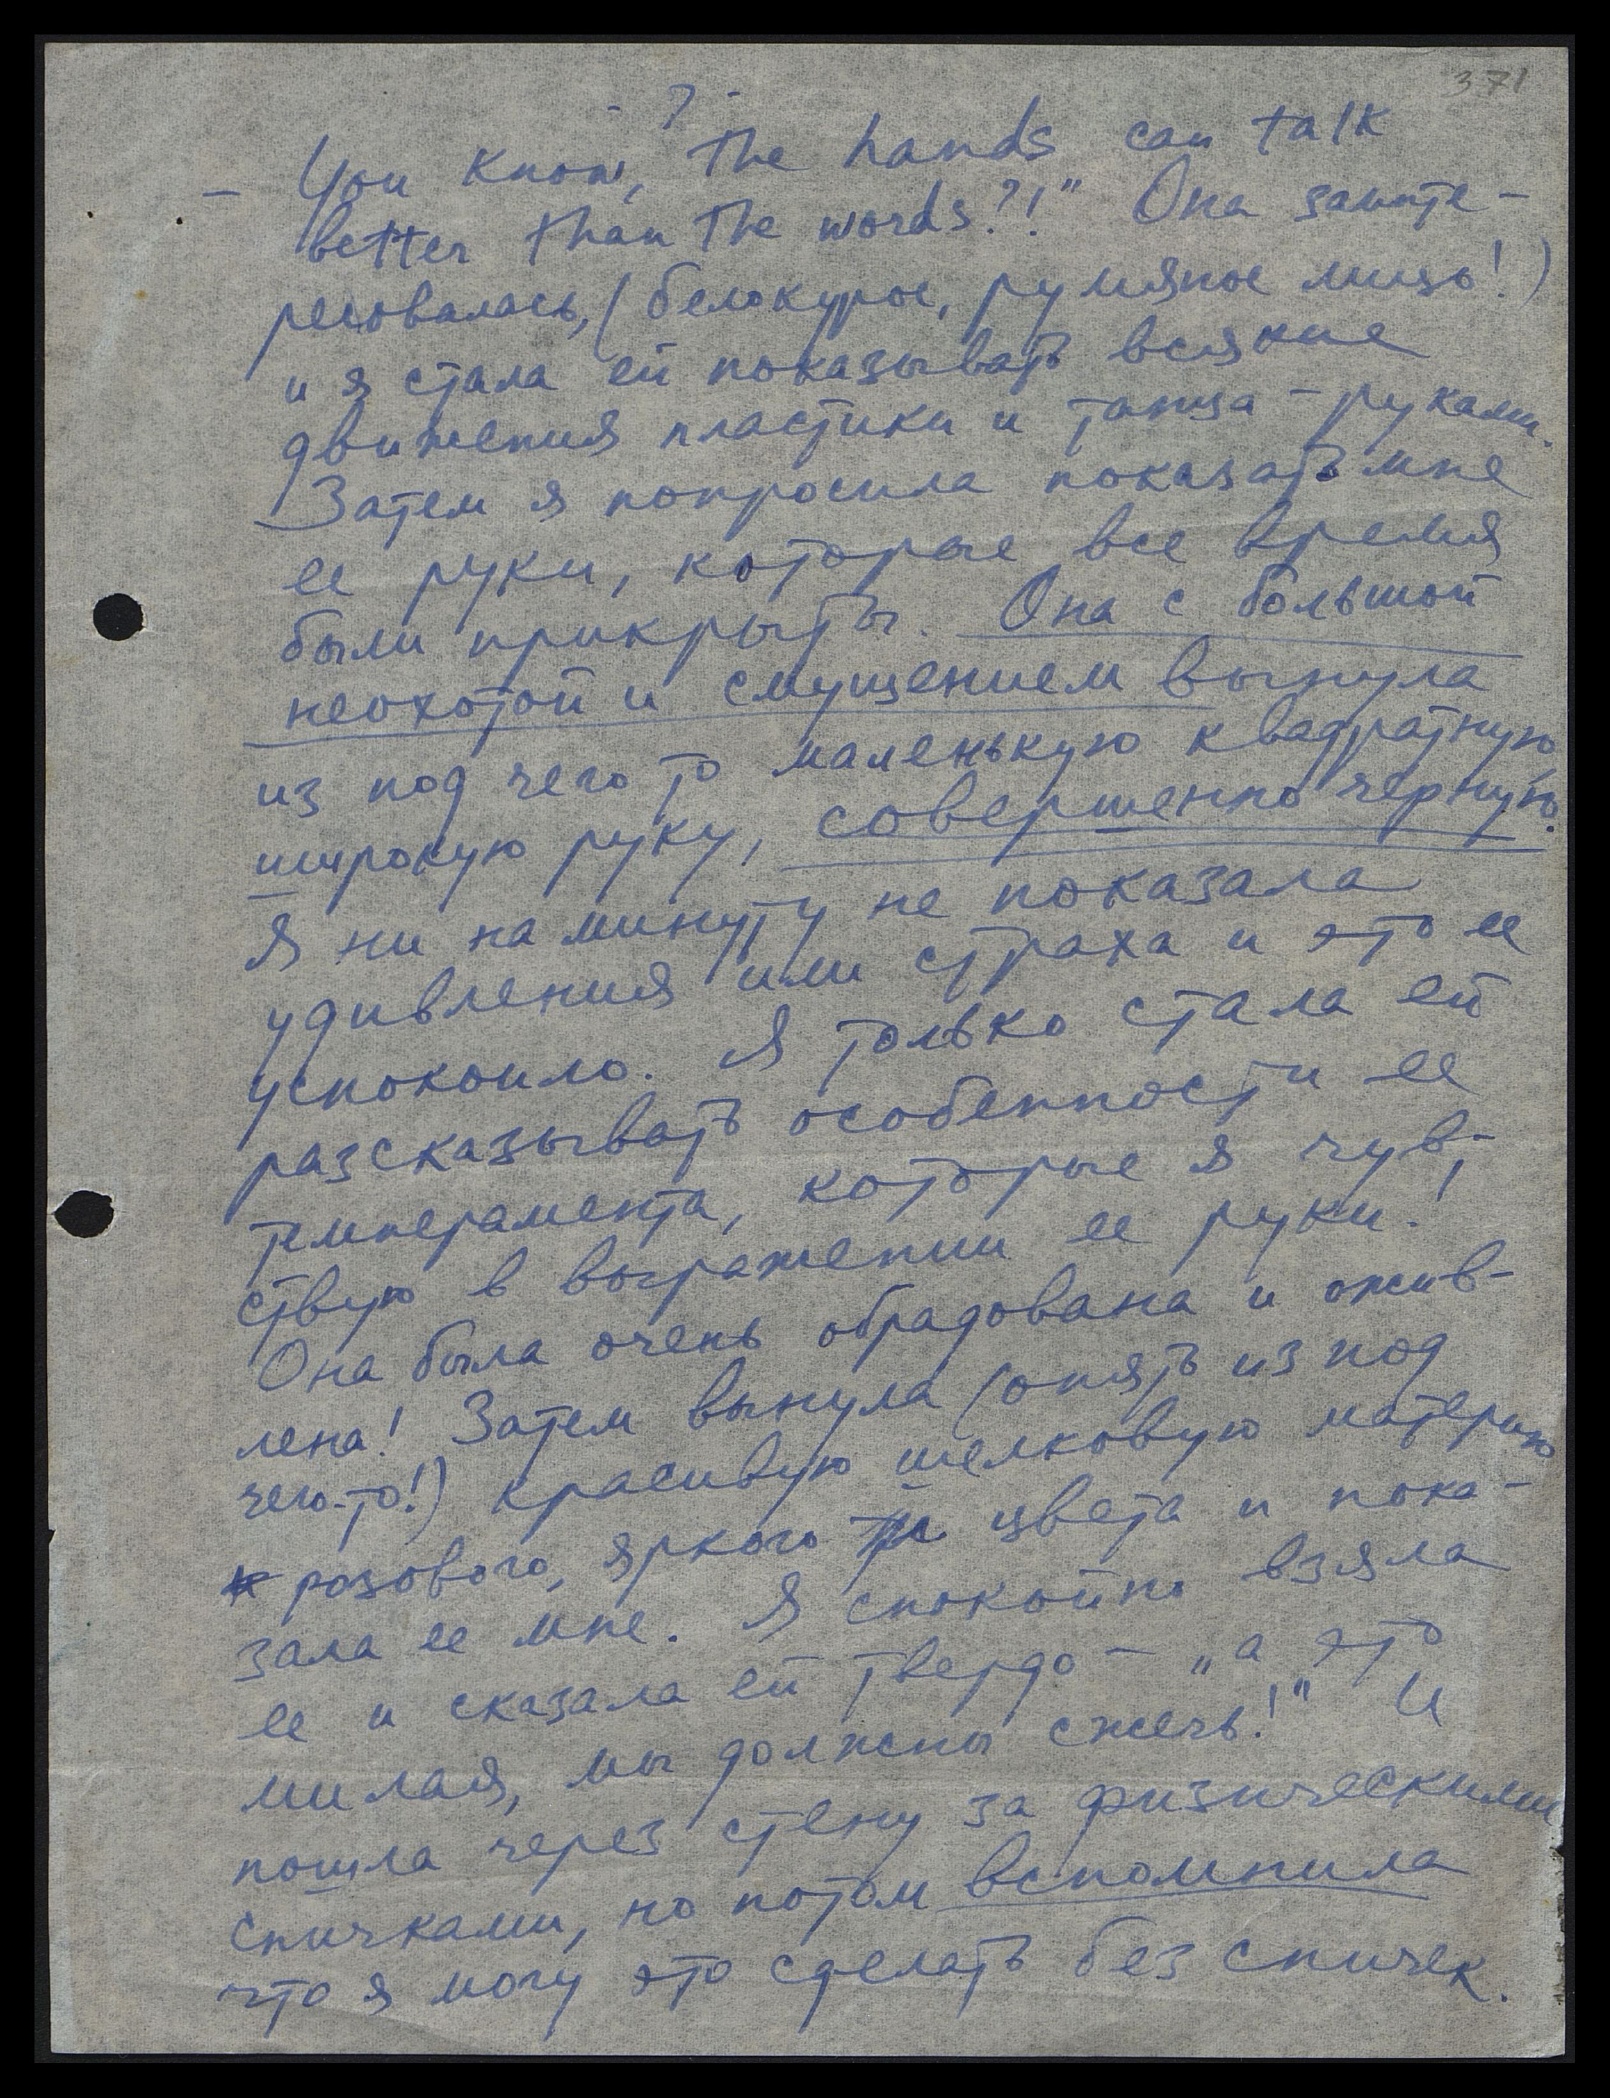 371
- 7 -
– You know, The hands can talk
better than The words?!" Она заинте-
ресовалась, (белокурое, румяное лицо!)
и я стала ей показывать всякие
движения пластики и танца – руками.
Затем я попросила показать мне
ее руки, которые все время
были прикрыты. Она с большой
неохотой и смущением вынула
из под чего то маленькую квадратную,
широкую руку, совершенно черную.
Я ни на минуту не показала
удивления или страха и это ее
успокоило. Я только стала ей
разсказывать особенности ее
темперамента, которые я чув-
ствую в выражении ее руки!
Она была очень обрадована и ожив-
лена! Затем вынула (опять из под
чего-то!) красивую шелковую материю
розового, яркого цвета и пока-
зала ее мне. Я спокойно взяла
ее и сказала ей твердо – „а это
милая, мы должны сжечь!" И
пошла через стену за физическими
спичками, но потом вспомнила
что я могу это сделать без спичек.